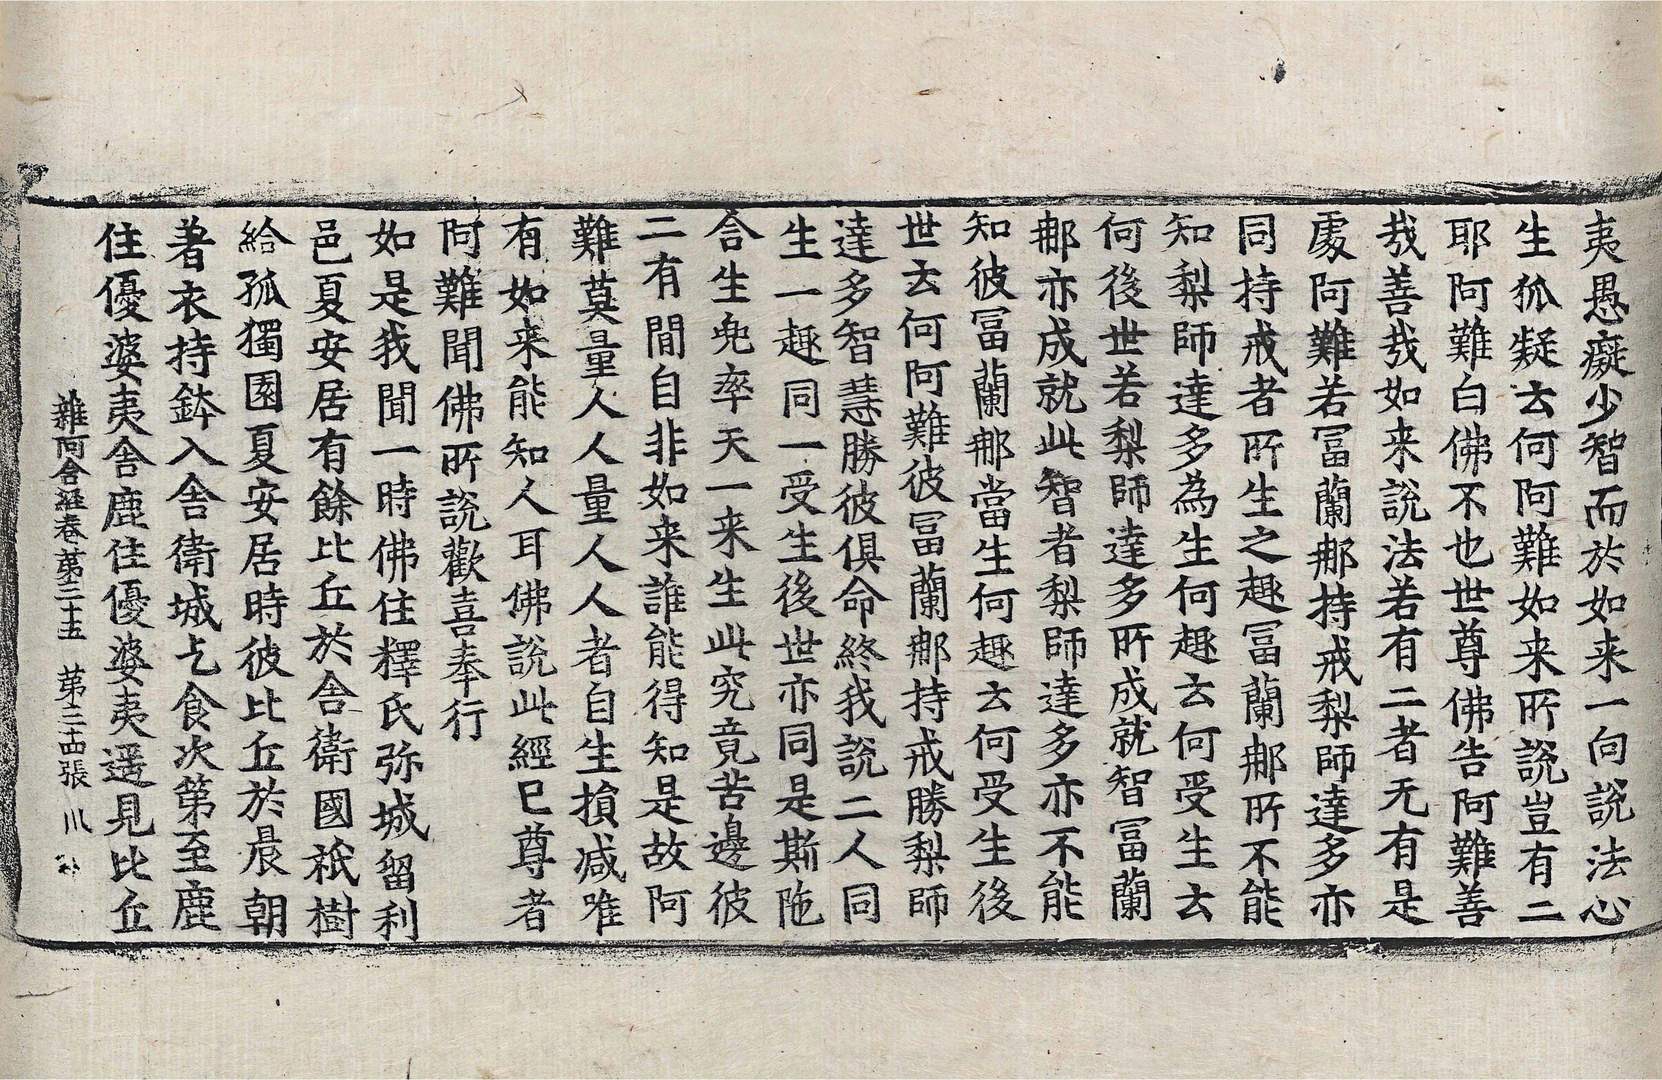 夷愚癡少智而於如来一向說法心
生狐疑云何阿難如来所說豈有二
耶阿難白佛不也世尊佛告阿難善
㢤善㢤如来說法若有二者无有是
處阿難若冨蘭那持戒梨師達多亦
同持戒者所生之趣冨蘭那所不能
知梨師達多為生何趣云何受生云
何後世若梨師達多所成就智冨蘭
那亦成就此智者梨師達多亦不能
知彼冨蘭那當生何趣云何受生後
世云何阿難彼冨蘭那持戒勝梨師
達多智慧勝彼俱命終我說二人同
生一趣同一受生後世亦同是斯陁
含生兜率天一来生此究竟苦邊彼
二有閒自非如来誰能得知是故阿
難莫量人人量人人者自生損减唯
有如来能知人耳佛說此經已尊者
阿難聞佛所說歡喜奉行
如是我聞一時佛住釋氏弥城留利
邑夏安居有餘比丘於舍衛國祇樹
給孤獨園夏安居時彼比丘於晨朝
著衣持鉢入舍衛城乞食次第至鹿
住優婆夷舍鹿住優婆夷遥見比丘
雜阿含經卷第三十五 第二十四張